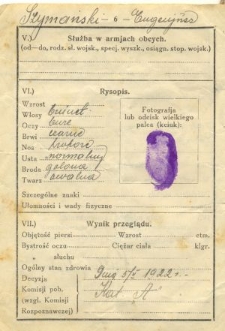 Szymański - Eugenjusz
V.) Służba w armjach obcych.
(od—do, rodz. sł. wojsk., specj. wyszk., osiągn. stop. wojsk.)
VI.) Rysopis.
Wzrost
Włosy
Oczy
Brwi
Nos
Usta normalny
Broda golona
Twarz owalna
Fotografja
lub odcisk wielkiego
palca (kciuk):
Szczególne znaki
Ułomności i wady fizyczne
VII.) Wynik przeglądu.
Objętość piersi Wzrost ctm.
Bystrość oczu Ciężar ciała klgr.
„ słuchu
Ogólny stan zdrowia
Decyzja 1922
Komisji pob. Kat A
(wzgl. Komisji
Rozpoznawczej)